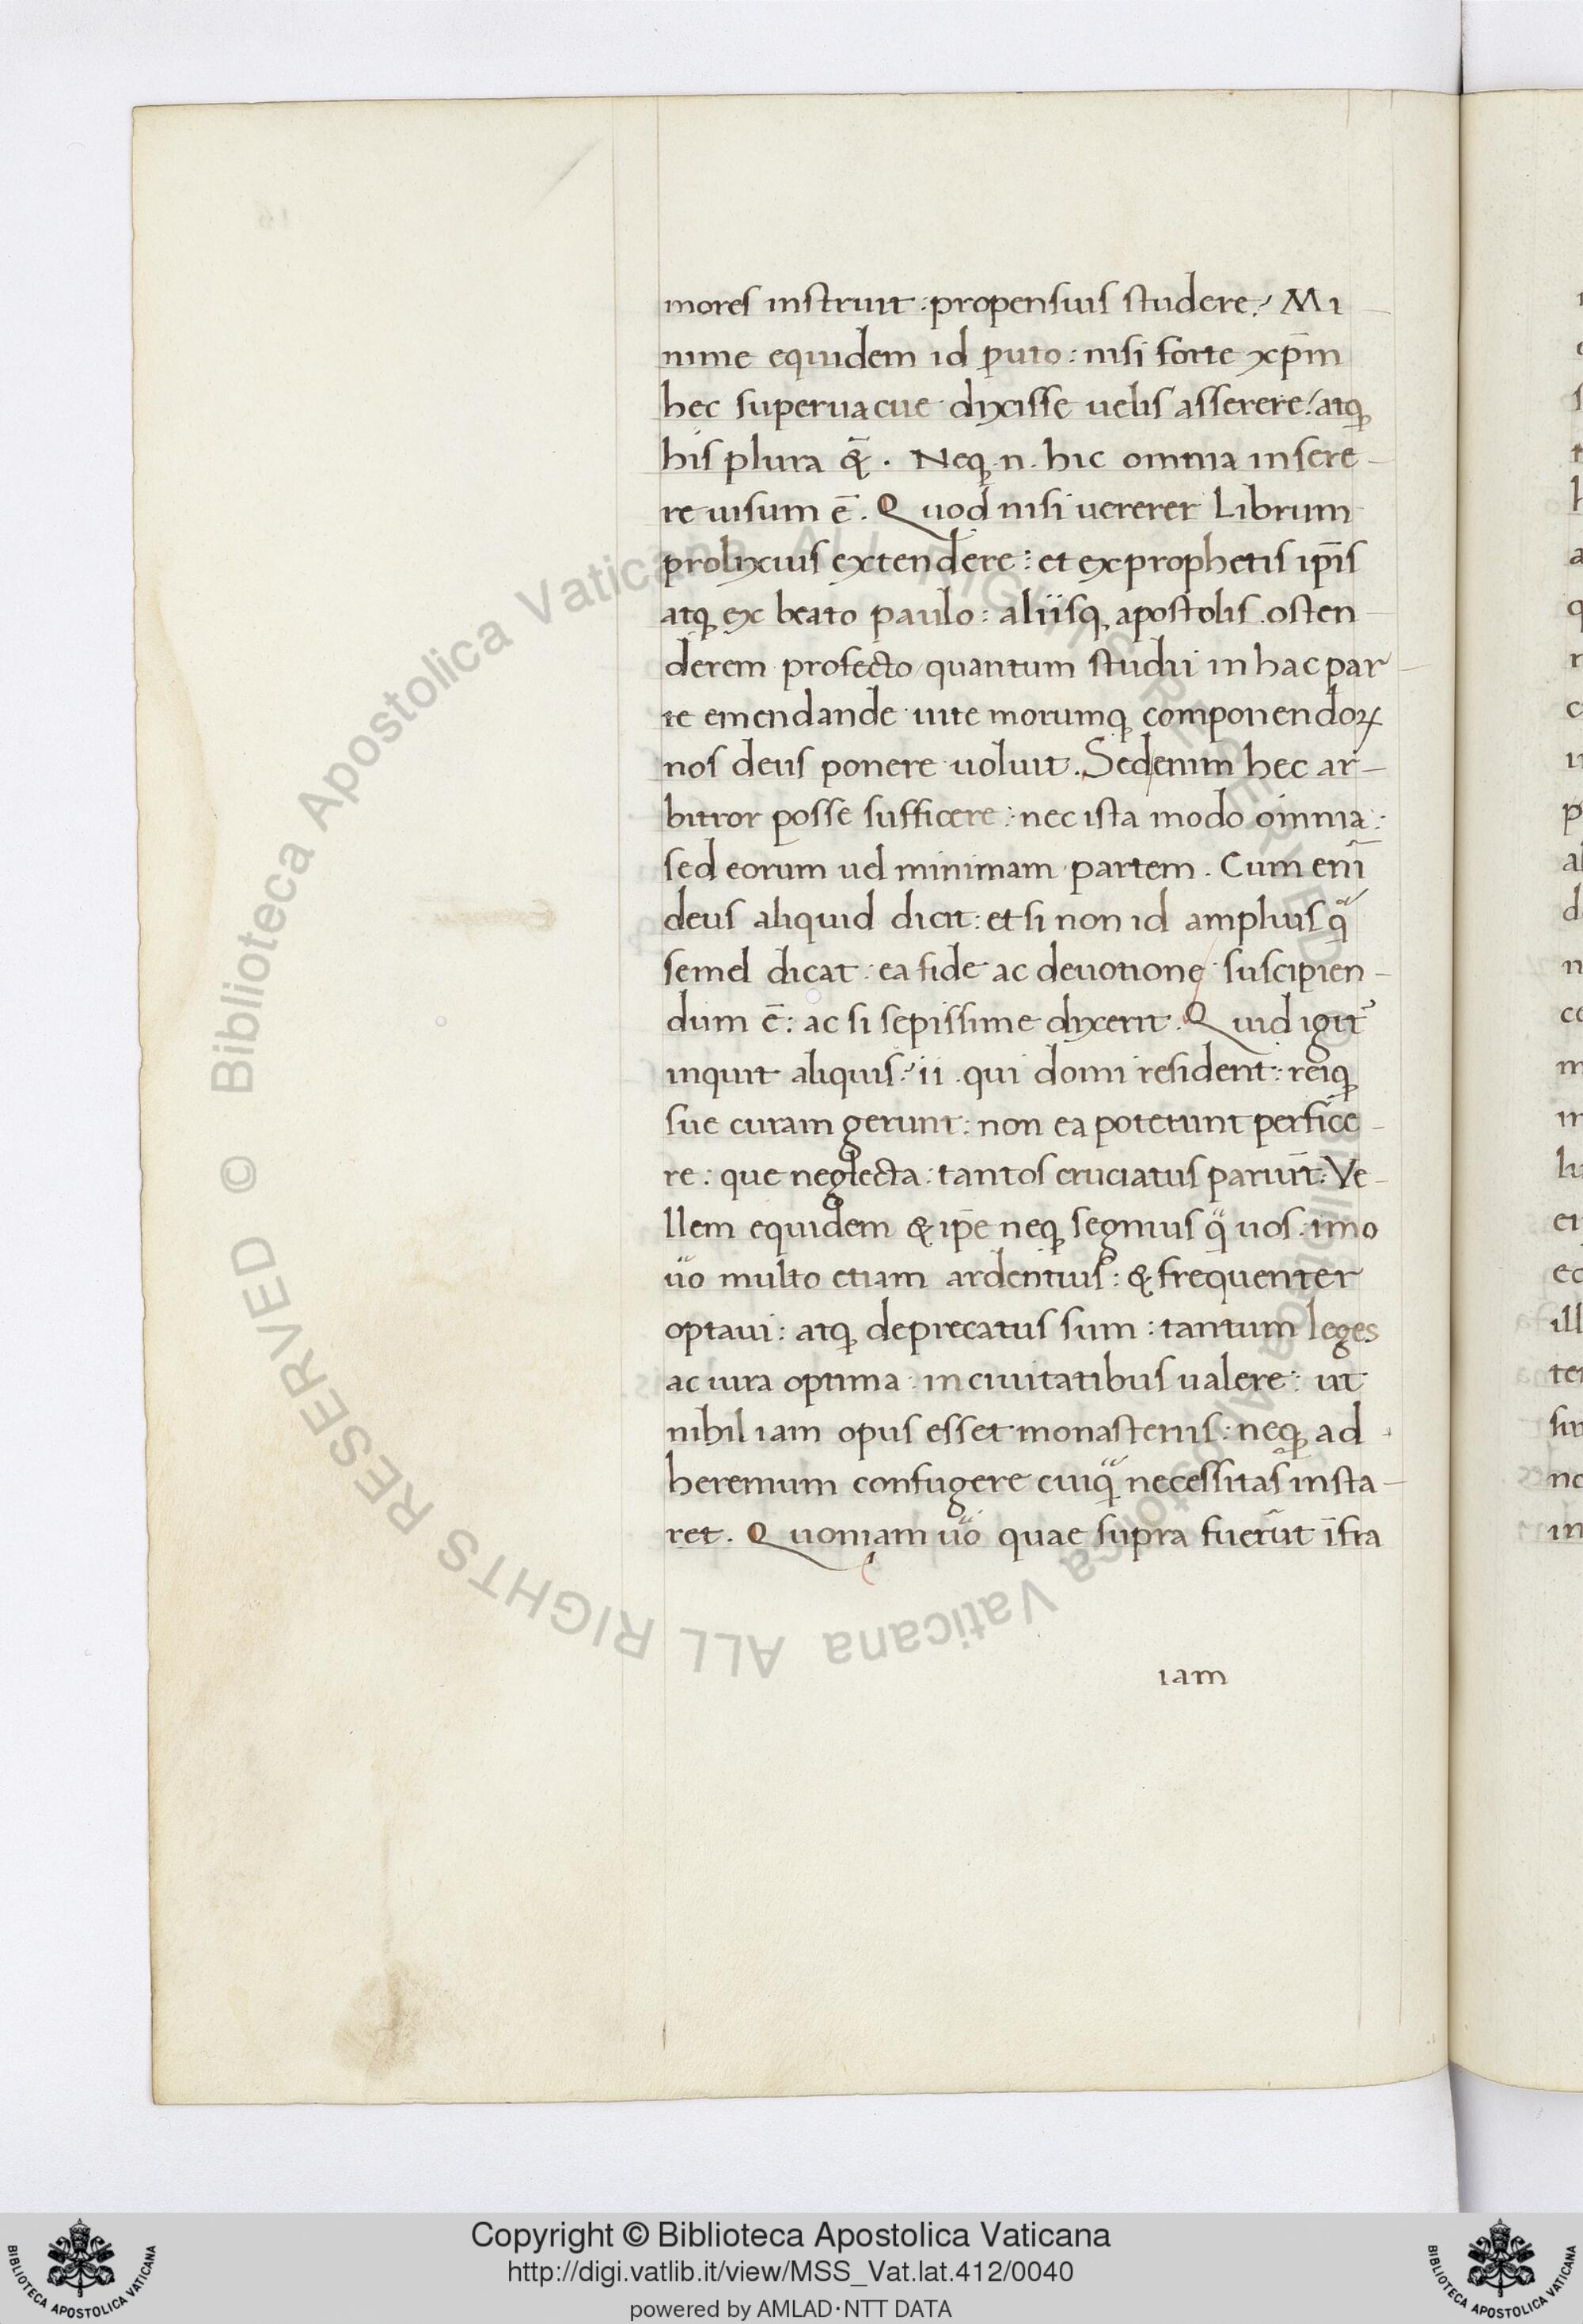 mores instruit : propensius studere? Mi
nime equidem id puto : nisi forte xp̄m
hec superuacue dixisse uelis asserere / atqꝫ
his plura q̄ . Neqꝫ .n. hic omnia insere-
re uisum ē. Quod nisi uererer librum
prolixius extendere : et ex prophetis ip̄is
atqꝫ ex beato paulo : aliisqꝫ apostolis . osten
derem profecto quantum studii in hac par
te emendande uite morumqꝫ componendoꝝ
nos deus ponere uoluit . Sed enim hec ar-
bitror posse sufficere : nec ista modo omnia :
sed eorum uel minimam partem . Cum enī
deus aliquid dicit : et si non id amplius qͣ
semel dicat : ea fide ac deuotione suscipien-
dum ē : ac si sepissime dixerit . Quid igit᷑
inquit aliquis? ii qui domi resident : reiqꝫ
sue curam gerunt : non ea poterunt perfice-
re : que neglecta : tantos cruciatus pariūt : Ve-
llem equidem & ip̄e neqꝫ segnius qͣ uos . imo
uͦo multo etiam ardentius : & frequenter
optaui : atqꝫ deprecatus sum : tantum leges
ac iura optima in ciuitatibus ualere : ut
nihil iam opus esset monasteriis : neqꝫ ad
heremum confugere cuiqͣ necessitas insta-
ret . Quoniam uͦo quae supra fuerūt īfra
iam
Biblioteca Apostolica Vaticana ALL RIGHTS RESERVED © Biblioteca Apostolica Vaticana ALL RIGHTS RESERVED ©
Copyright © Biblioteca Apostolica Vaticana
http://digi.vatlib.it/view/MSS_Vat.lat.412/0040
powered by AMLAD·NTT DATA
BIBLIOTECA APOSTOLICA VATICANA
BIBLIOTECA APOSTOLICA VATICANA